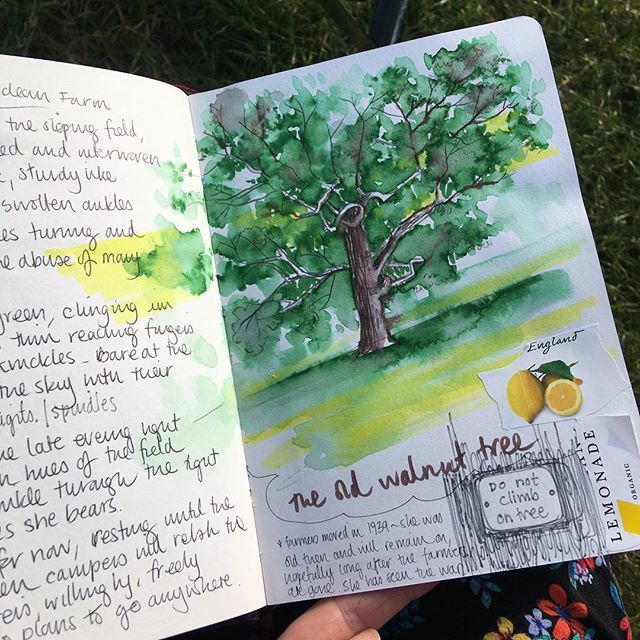 dean Farm
the sloping field,
ed and interwoven
, sturdy like
swollen ankles
es turning and
e abuse of many
green, clinging in
thin reading fingers
knuckles - bare at the
the sky with their
ights. / spindles
e late evening light
n hues of the field
nkle through the light
es she bears.
for now, resting until the
en campers will relish the
ers, willingly, freely
plans to go anywhere.
England
LEMONADE
ORGANIC
the old walnut tree
DO not
climb
on tree
* farmers moved in 1939 - she was
old then and will remain on,
hopefully long after the farmers
are gone. She has seen the war